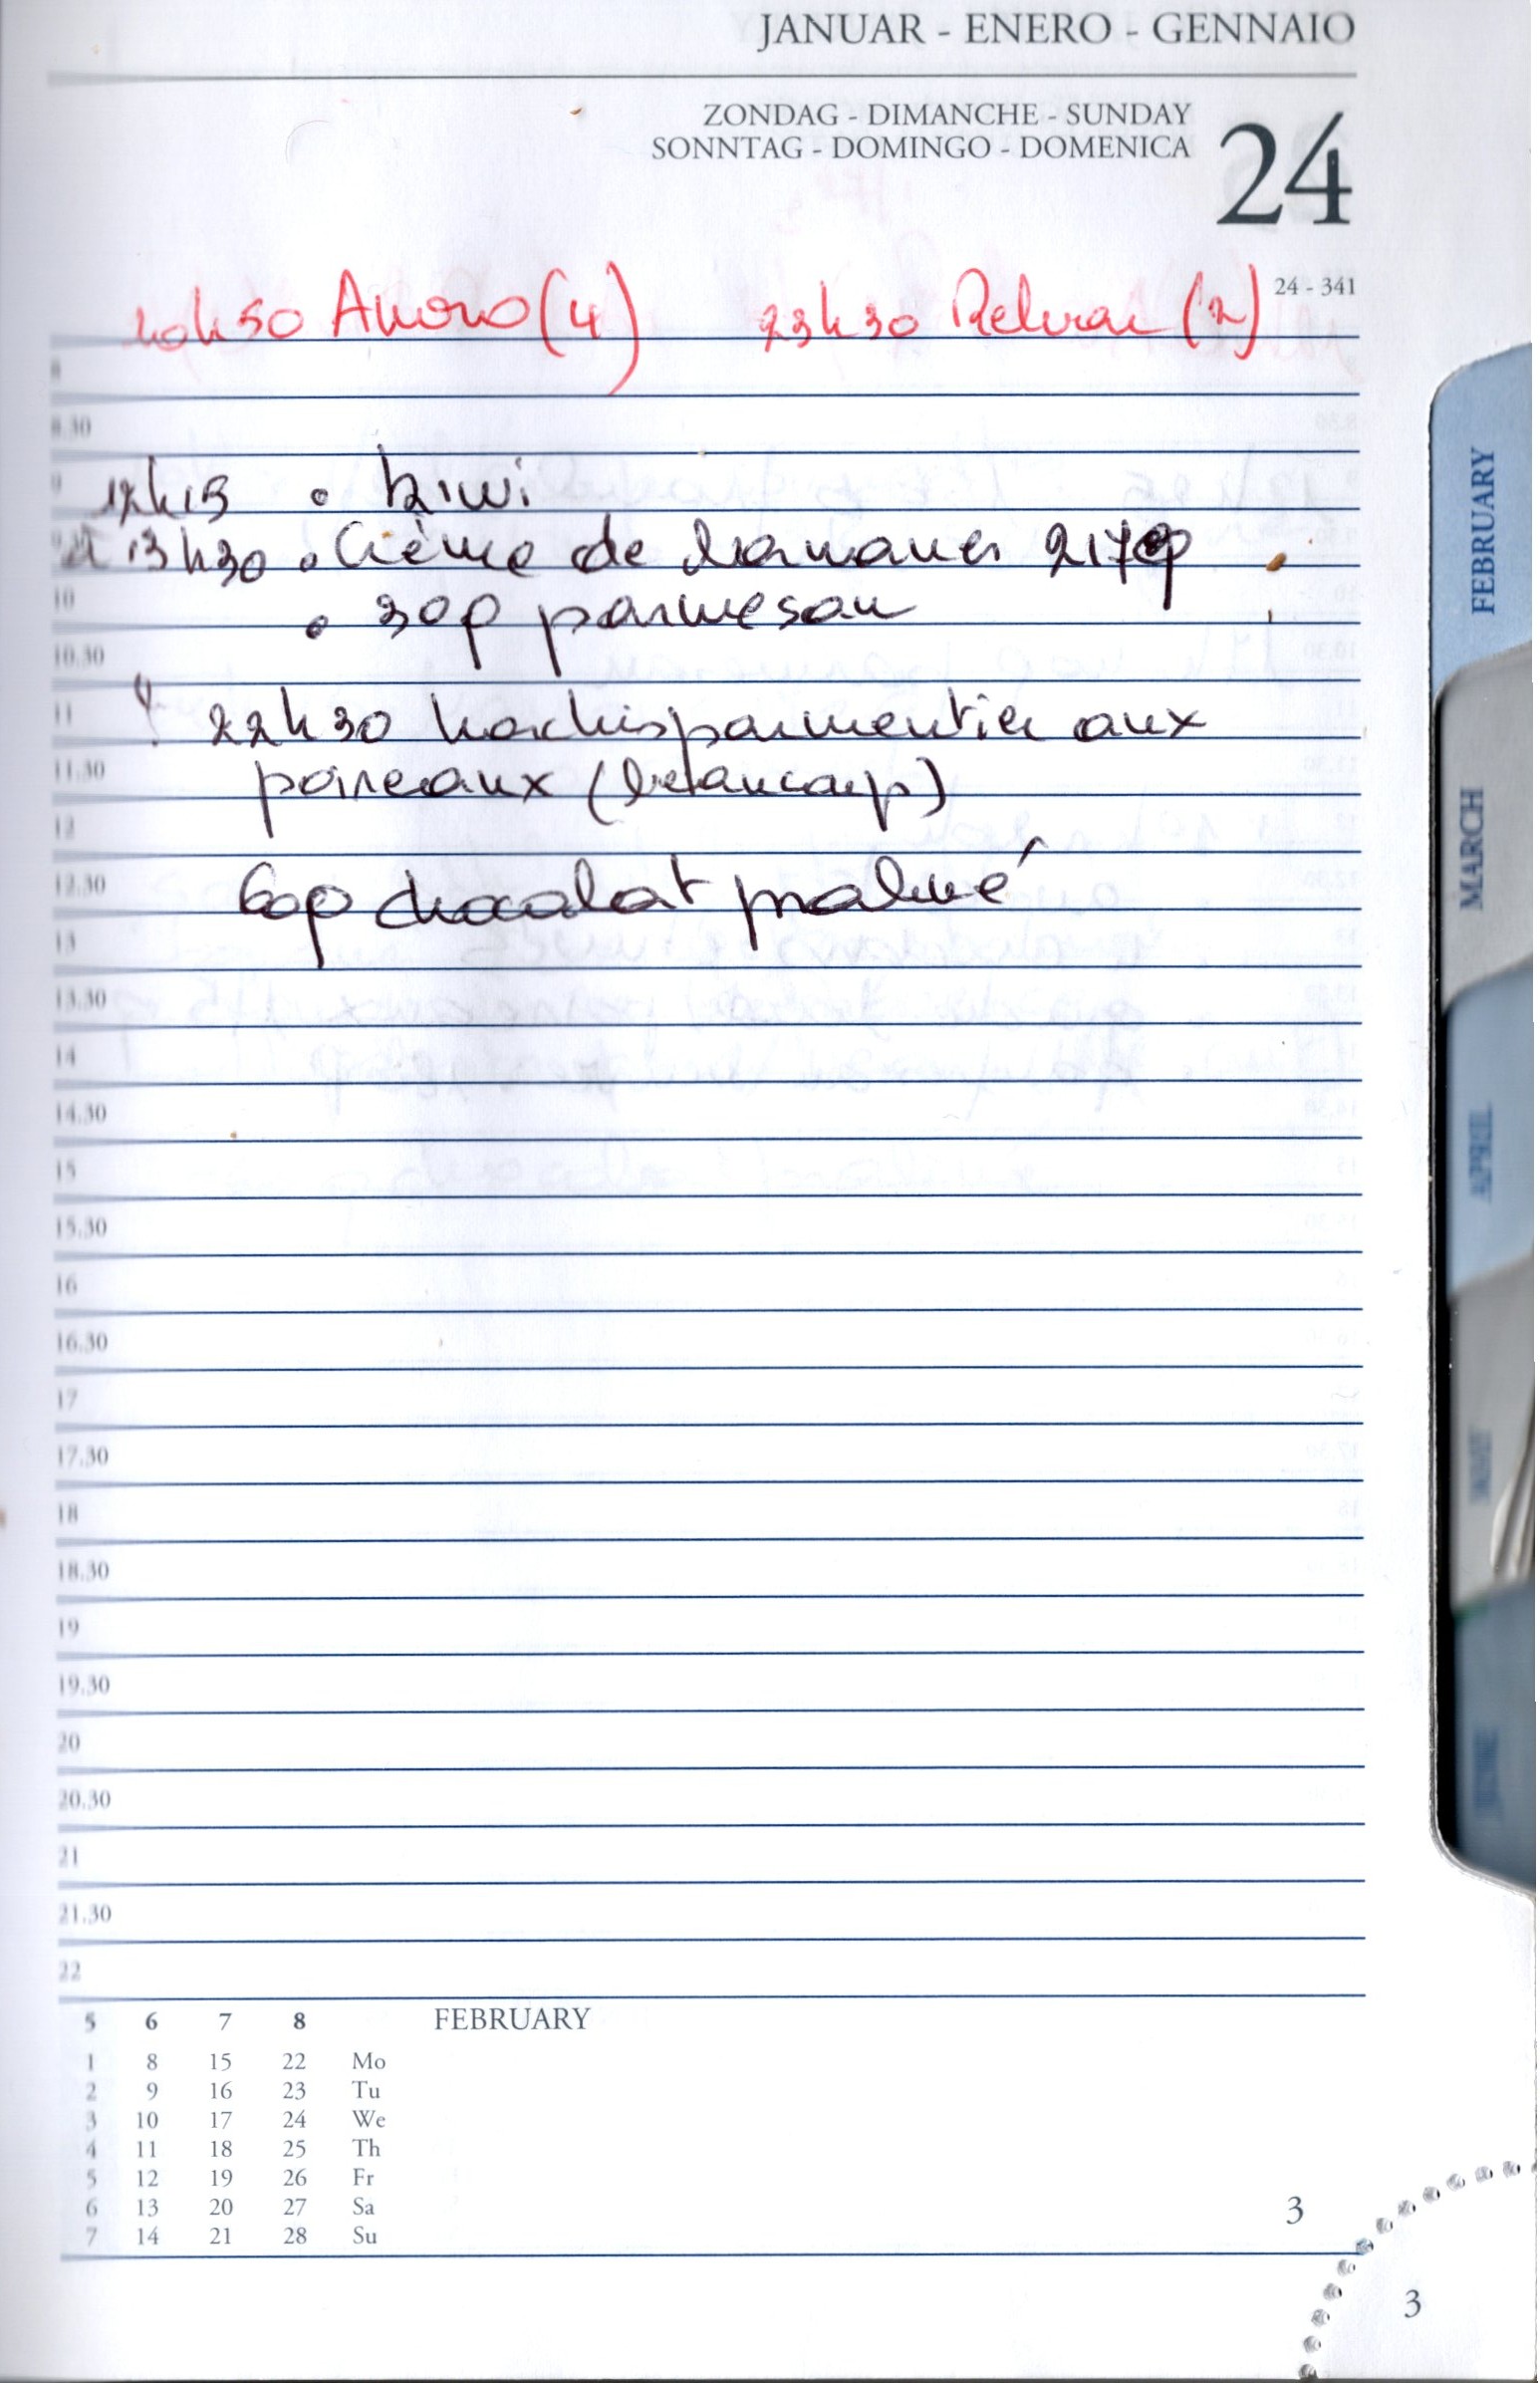 JANUAR - ENERO - GENNAIO
ZONDAG - DIMANCHE - SUNDAY
SONNTAG - DOMINGO - DOMENICA
24
24 - 341
(4) 23h30 (2)
8
8.30
9
12h15 • kiwi
13h30 • Crème de 217g
10
• 30g parmesan
10.30
11
22h30 hachis parmentier aux
11.30
poireaux (betaucarp)
12
12.30
60g chocolat praliné
13
13.30
14
14.30
15
15.30
16
16.30
17
17.30
18
18.30
19
19.30
20
20.30
21
21.30
22
5 6 7 8 FEBRUARY
1 8 15 22 Mo
2 9 16 23 Tu
3 10 17 24 We
4 11 18 25 Th
5 12 19 26 Fr
6 13 20 27 Sa
7 14 21 28 Su
3
3
FEBRUARY
MARCH
APRIL
JUNE